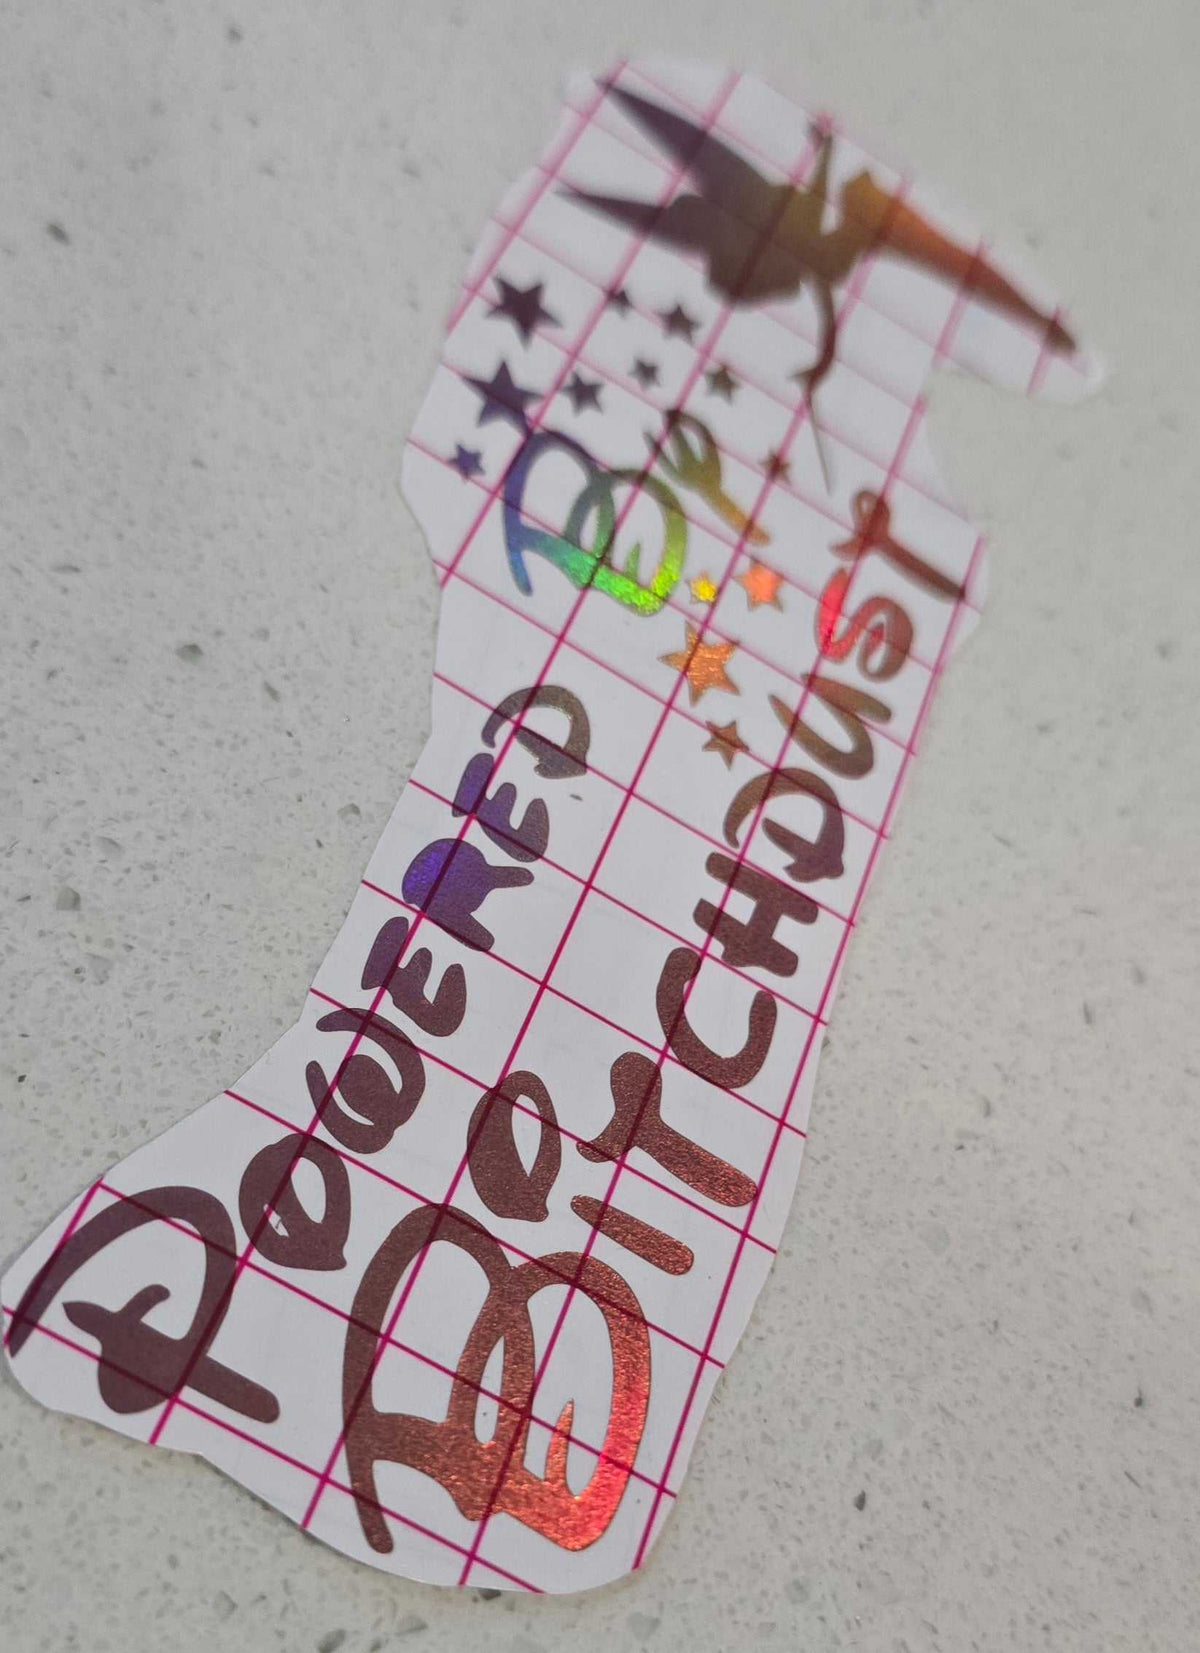 POWERED BY
BITCHDUST